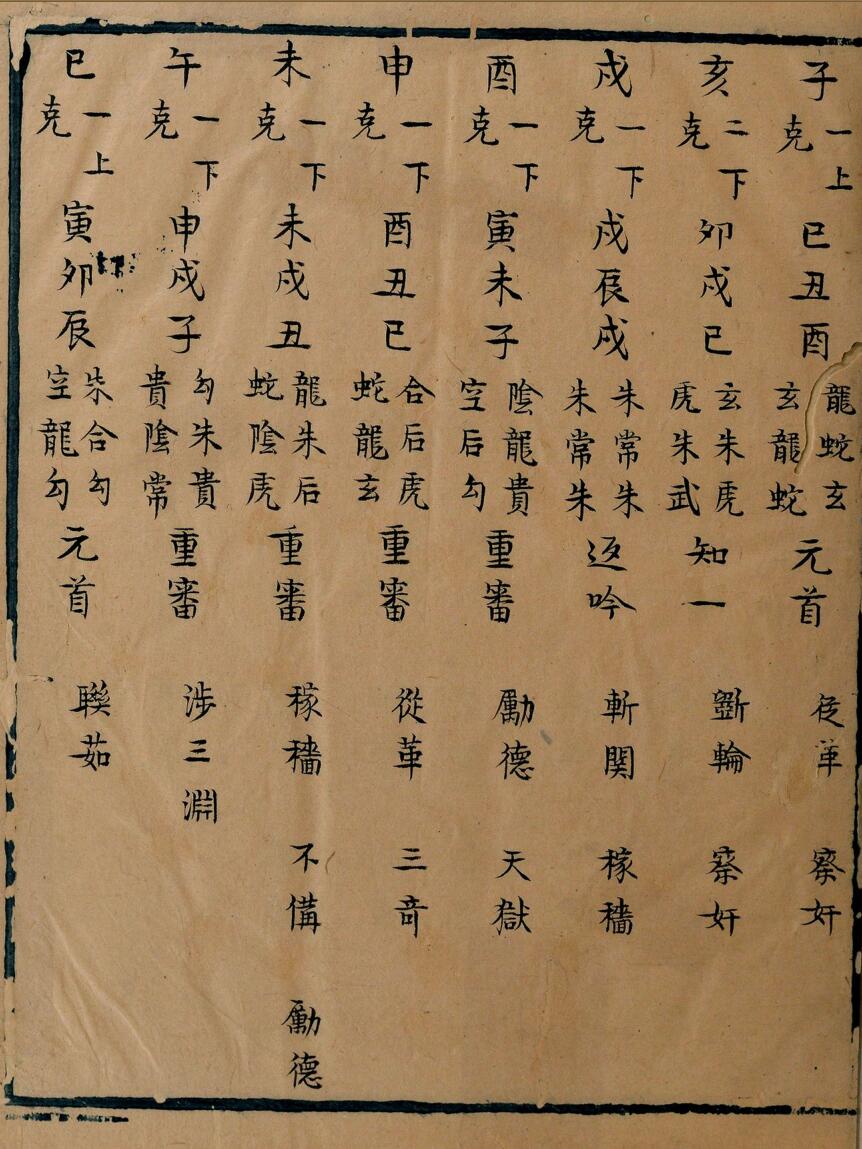 子 一上克 巳丑酉 龍蛇玄 玄龍蛇 元首 從革 察奸
亥 二下克 卯戌巳 玄朱虎 虎朱武 知一 斵輪 察奸
戌 一下克 戌辰戌 朱常朱 朱常朱 返吟 斬関 稼穡
酉 一下克 寅未子 陰龍貴 空后勾 重審 勵德 天獄
申 一下克 酉丑巳 合后虎 蛇龍玄 重審 從革 三奇
未 一下克 未戌丑 龍朱后 蛇陰虎 重審 稼穡 不備 勵德
午 一下克 申戌子 勾朱貴 貴陰常 重審 涉三淵
巳 一上克 寅卯辰 朱合勾 空龍勾 元首 聯茹